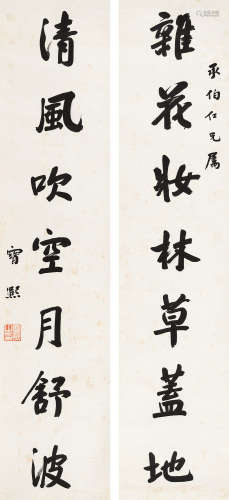 承伯仁兄属
雜花妝林草蓋地
清風吹空月舒波
寶熙